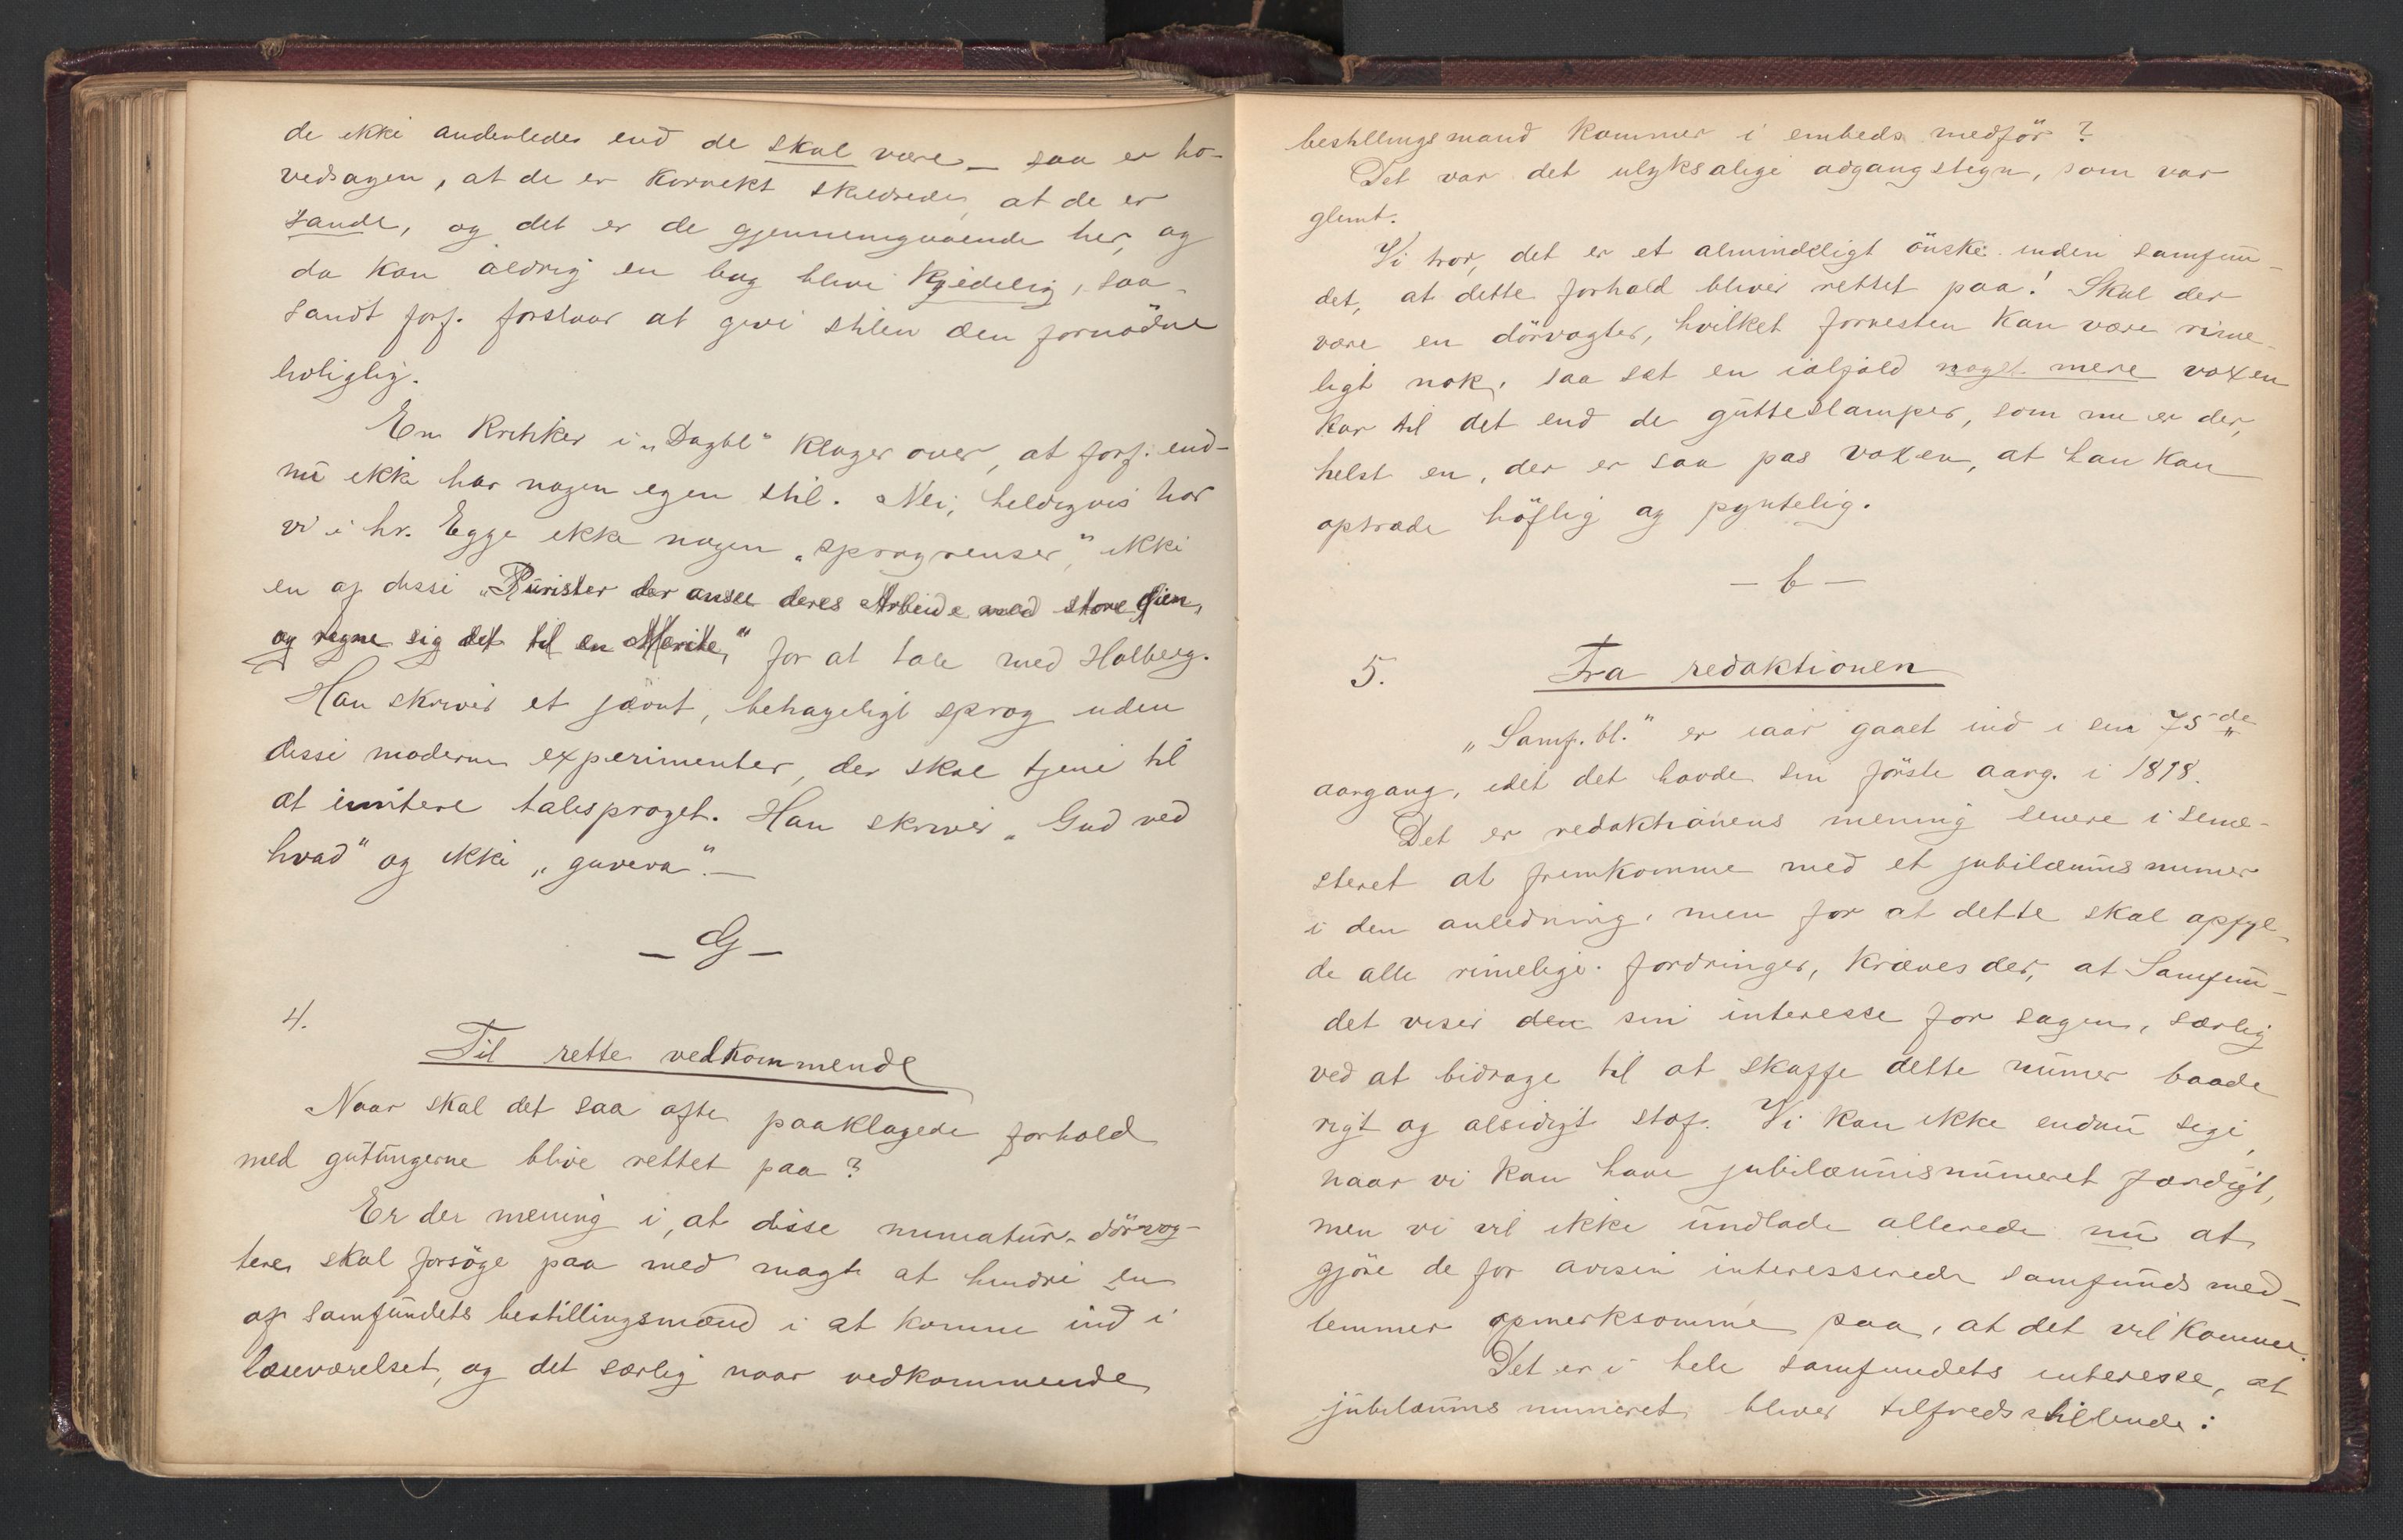 de ikke anderledes end de skal være – saa er ho-
vedsagen, at de er korrekt skildrede, at de er
sande, og det er de gjennemgaaende her, og
da kan aldrig en bog blive kjedelig, saa-
sandt forf. forstaar at give stilen den fornødne
livlighed.
En kritiker i „Dagbl“ klager over, at forf. end-
nu ikke har nogen egen stil. Nei, heldigvis har
vi i hr. Egge ikke nogen „sprogrenser“, ikke
en af disse „Purister der ansee deres Arbeide med store Øien,
og regne sig det til en Merite,“ for at tale med Holberg.
Han skriver et jævnt, behageligt sprog uden
disse moderne experimenter, der skal tjene til
at imitere talesproget. Han skriver „Gud ved
hvad“ og ikke „guveva“. –
– G –
4.
Til rette vedkommende
Naar skal det saa ofte paaklagede forhold
med guttungerne blive rettet paa?
Er der mening i, at disse miniatur-dörvog-
tere skal forsöge paa med magt at hindre en
af samfundets bestillingsmænd i at komme ind i
læseværelset, og det særlig naar vedkommende
bestillingsmand kommer i embeds medför?
Det var det ulyksalige adgangstegn, som var
glemt.
Vi tror, det er et almindeligt önske inden samfun-
det, at dette forhold bliver rettet paa! Skal der
være en dörvogter, hvilket forresten kan være rime-
ligt nok, saa sæt en ialfald noget mere voxen
kar til det end de gutteslamper, som nu er der,
helst en, der er saa pas voxen, at han kan
optræde höflig og pyntelig.
– b –
5. Fra redaktionen
„Samf. bl.“ er iaar gaaet ind i sin 75de
aargang, idet det havde sin förste aarg. i 1818.
Det er redaktionens mening senere i seme-
steret at fremkomme med et jubilæumsnumer
i den anledning, men for at dette skal opfyl-
de alle rimelige fordringer, kræves der, at Samfun-
det viser den sin interesse for sagen, særlig
ved at bidrage til at skaffe dette numer baade
rigt og alsidigt stof. Vi kan ikke endnu sige,
naar vi kan have jubilæumsnumeret færdigt,
men vi vil ikke undlade allerede nu at
gjöre de for avisen interesserede samfundsmed-
lemmer opmerksomme paa, at det vil komme.
Det er i hele samfundets interesse, at
jubilæumsnumeret bliver tilfredsstillende: